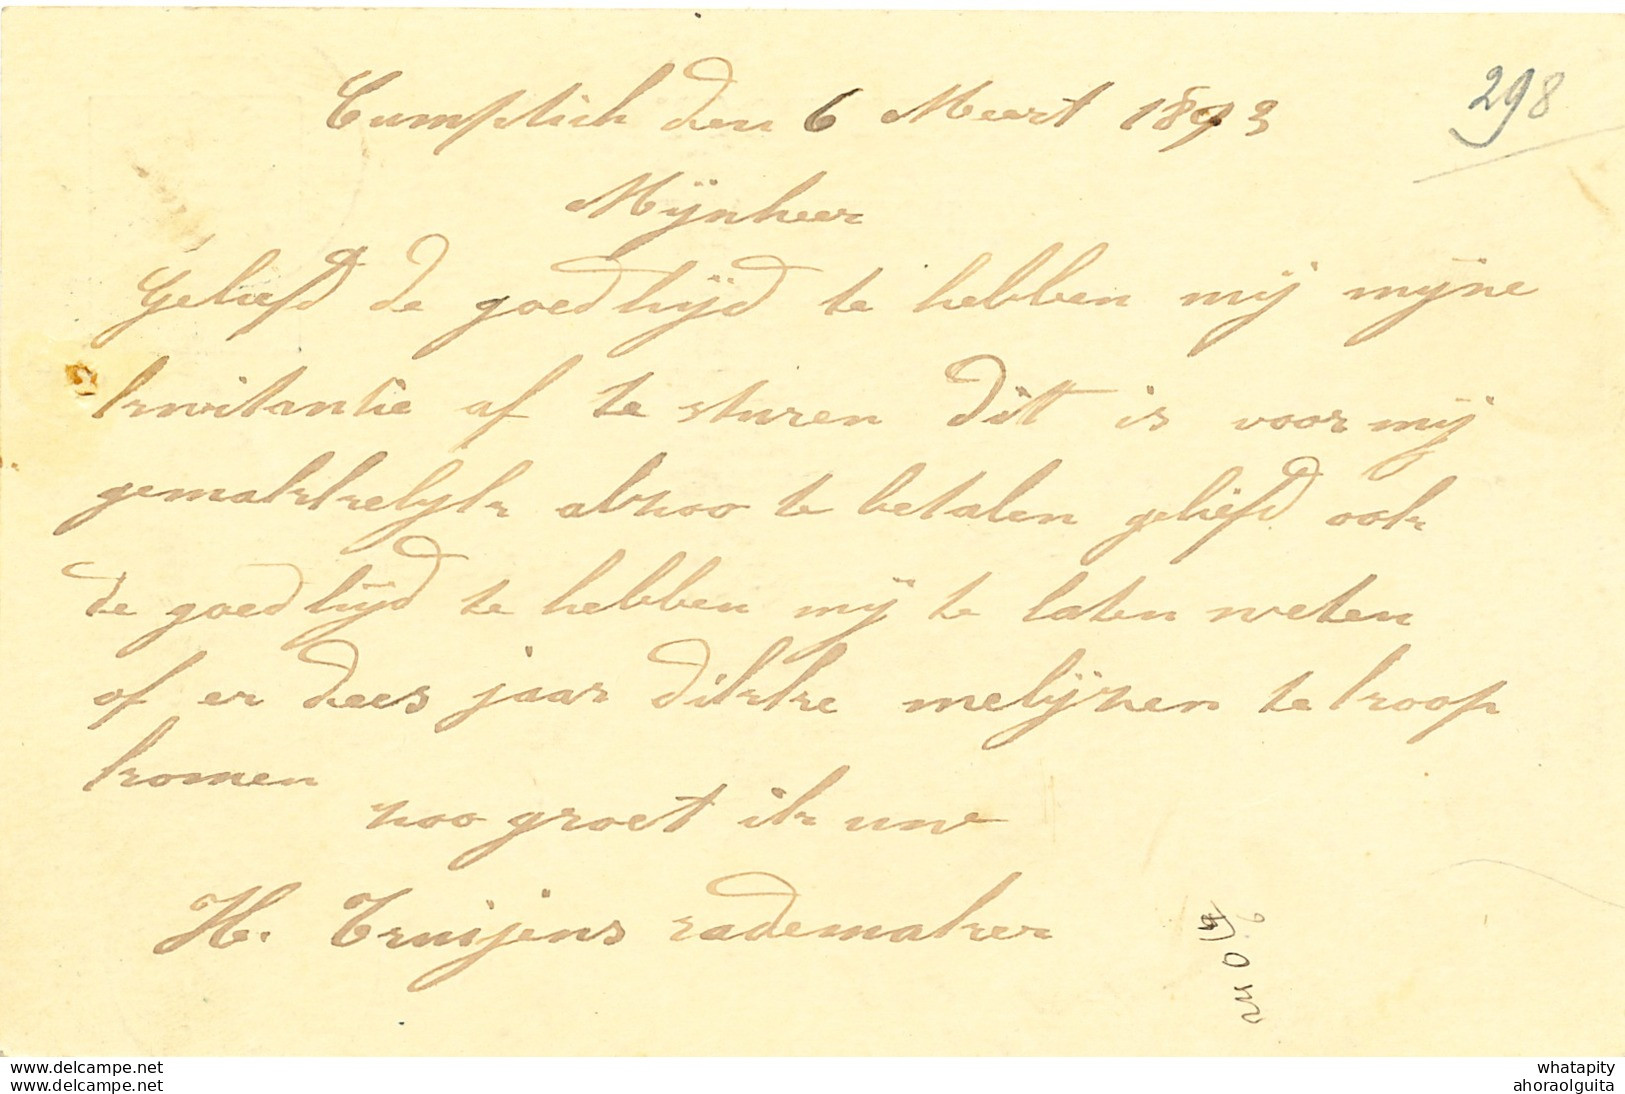 Cumptich den 6 Meert 1893
298
Mijnheer
Geliefd de goedhijd te hebben mij mijne
kwitantie af te sturen Dit is voor mij
gemakkelijk alzoo te betalen geliefd ook
de goedhijd te hebben mij te laten weten
of er dees jaar dikke melijzen te koop
komen
zoo groet ik uw
H. Truijens rademaker
www.delcampe.net
www.delcampe.net
whatapity
ahoraolguita